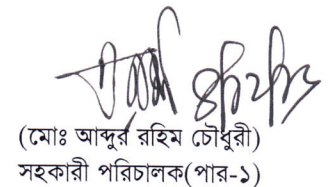 (মোঃ আব্দুর রহিম চৌধুরী)
সহকারী পরিচালক(পার-১)